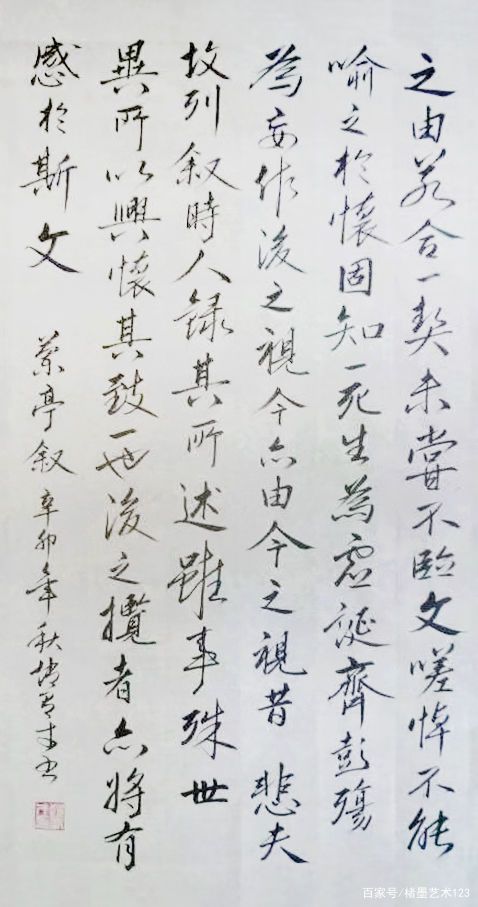 之由若合一契未嘗不臨文嗟悼不能
喻之於懷固知一死生為虛誕齊彭殤
為妄作後之視今亦由今之視昔悲夫
故列叙時人錄其所述雖事殊世
異所以興懷其致一也後之攬者亦將有
感於斯文
蘭亭叙 辛卯年秋 書
百家号/楮墨艺术123